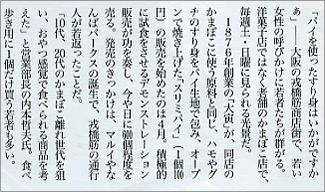 「パイを使ったすり身はいかがですか
ぁ」――大阪の戎橋筋商店街で、若い
女性の呼びかけに若者たちが群がる。
洋菓子店ではなく老舗のかまぼこ店で、
毎週土・日曜に見られる光景だ。
1876年創業の「大寅」が、同店の
かまぼこに使う原料と同じ、ハモやグ
チのすり身をパイ生地で包み、オーブ
ンで焼き上げた"スリミパイ"（1個100
円）の販売を始めたのは4月。積極的
に試食をさせるデモンストレーション
販売が功を奏し、今や日に600個程度を
売る。発売のきっかけは、マルイやな
んばパークスの誕生で、戎橋筋の通行
人が若返ったことだ。
「10代、20代のかまぼこ離れ世代を狙
い、おやつ感覚で食べられる商品を考
えた」と営業部長の内本哲夫氏。食べ
歩き用に1個だけ買う若者も多い。